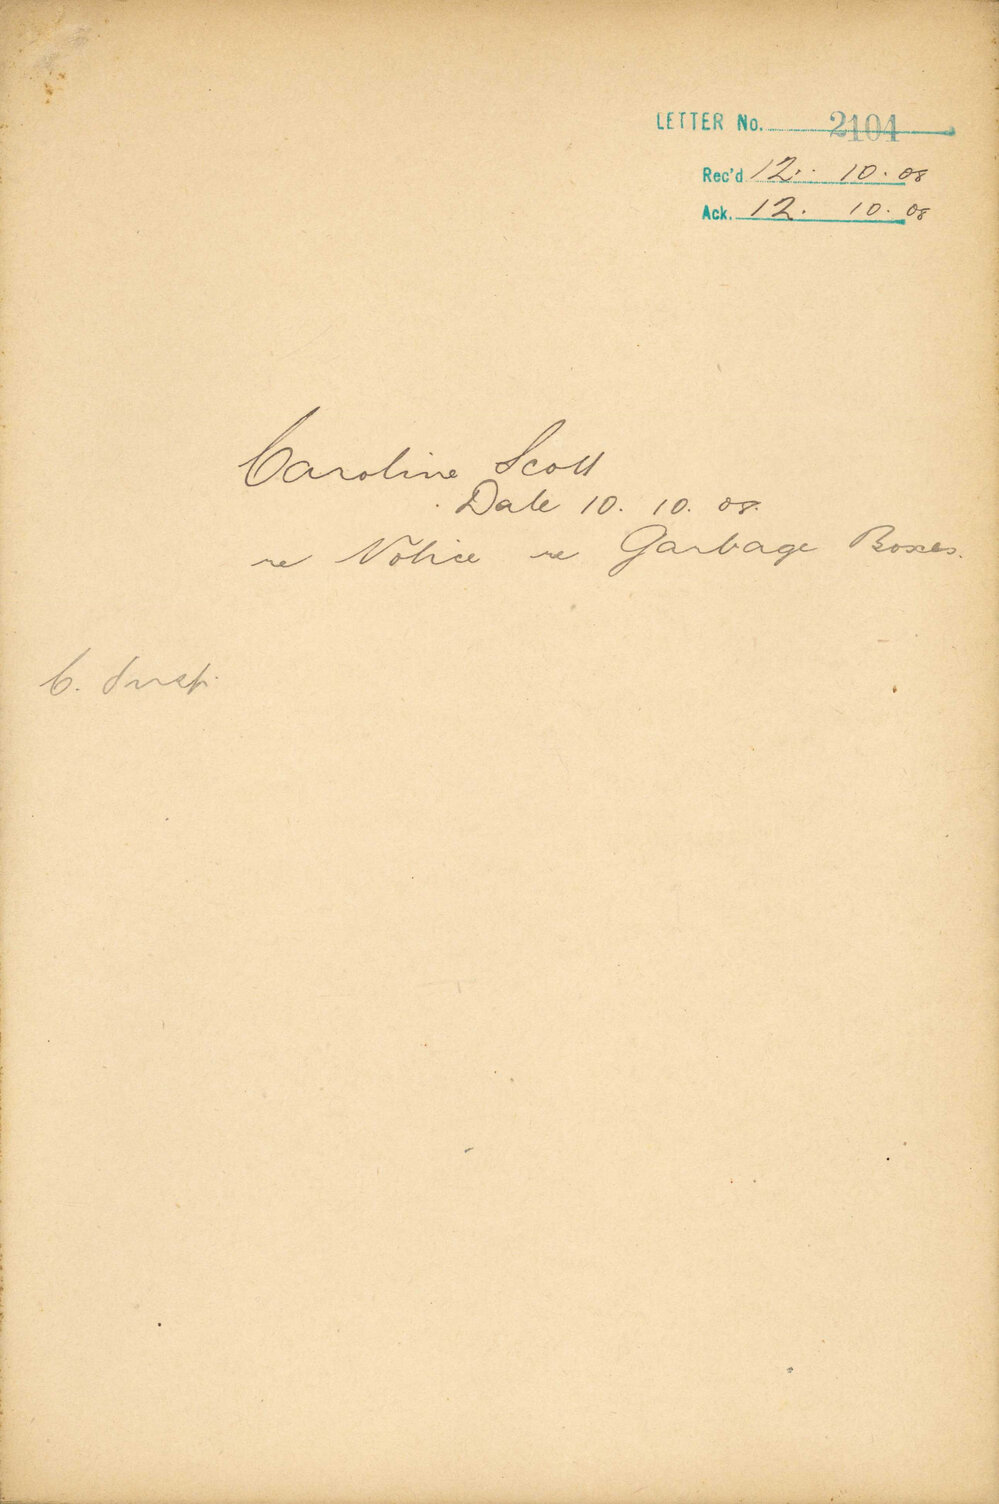 LETTER No. 2104
Rec'd 12. 10. 08
Ack. 12. 10. 08
Caroline Scott
Date 10. 10. 08.
re Notice re Garbage Boxes.
C. Insp.